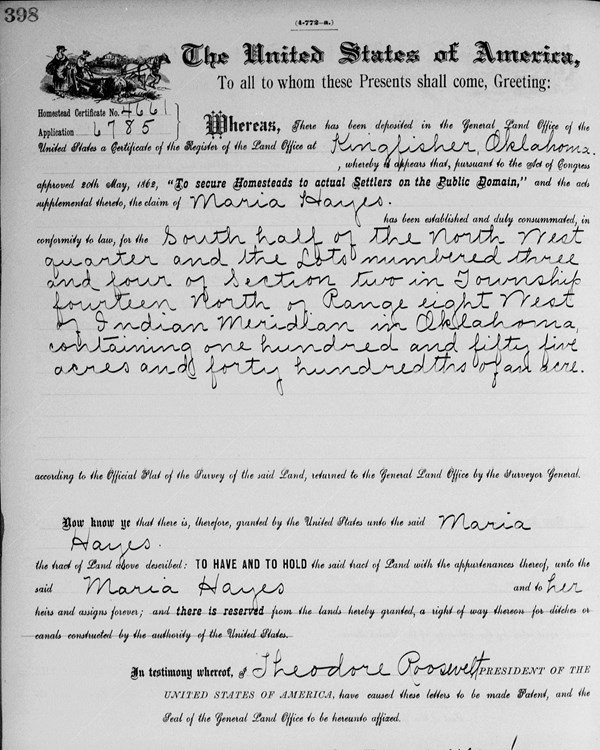 398
(4-772-a.)
The United States of America,
To all to whom these Presents shall come, Greeting:
Homestead Certificate No. 4661
Application 6785
Whereas, There has been deposited in the General Land Office of the
United States a Certificate of the Register of the Land Office at Kingfisher, Oklahoma.
, whereby it appears that, pursuant to the Act of Congress
approved 20th May, 1862, "To secure Homesteads to actual Settlers on the Public Domain," and the acts
supplemental thereto, the claim of Maria Hayes.
has been established and duly consummated, in
conformity to law, for the South half of the North West
quarter and the Lots numbered three
and four of Section two in Township
fourteen North of Range eight West
of Indian Meridian in Oklahoma,
containing one hundred and fifty five
acres and forty hundredths of an acre.
according to the Official Plat of the Survey of the said Land, returned to the General Land Office by the Surveyor General.
Now know ye that there is, therefore, granted by the United States unto the said Maria
Hayes.
the tract of Land above described: TO HAVE AND TO HOLD the said tract of Land with the appurtenances thereof, unto the
said Maria Hayes and to her
heirs and assigns forever; and there is reserved from the lands hereby granted, a right of way thereon for ditches or
canals constructed by the authority of the United States.
In testimony whereof, I Theodore Roosevelt PRESIDENT OF THE
UNITED STATES OF AMERICA, have caused these letters to be made Patent, and the
Seal of the General Land Office to be hereunto affixed.